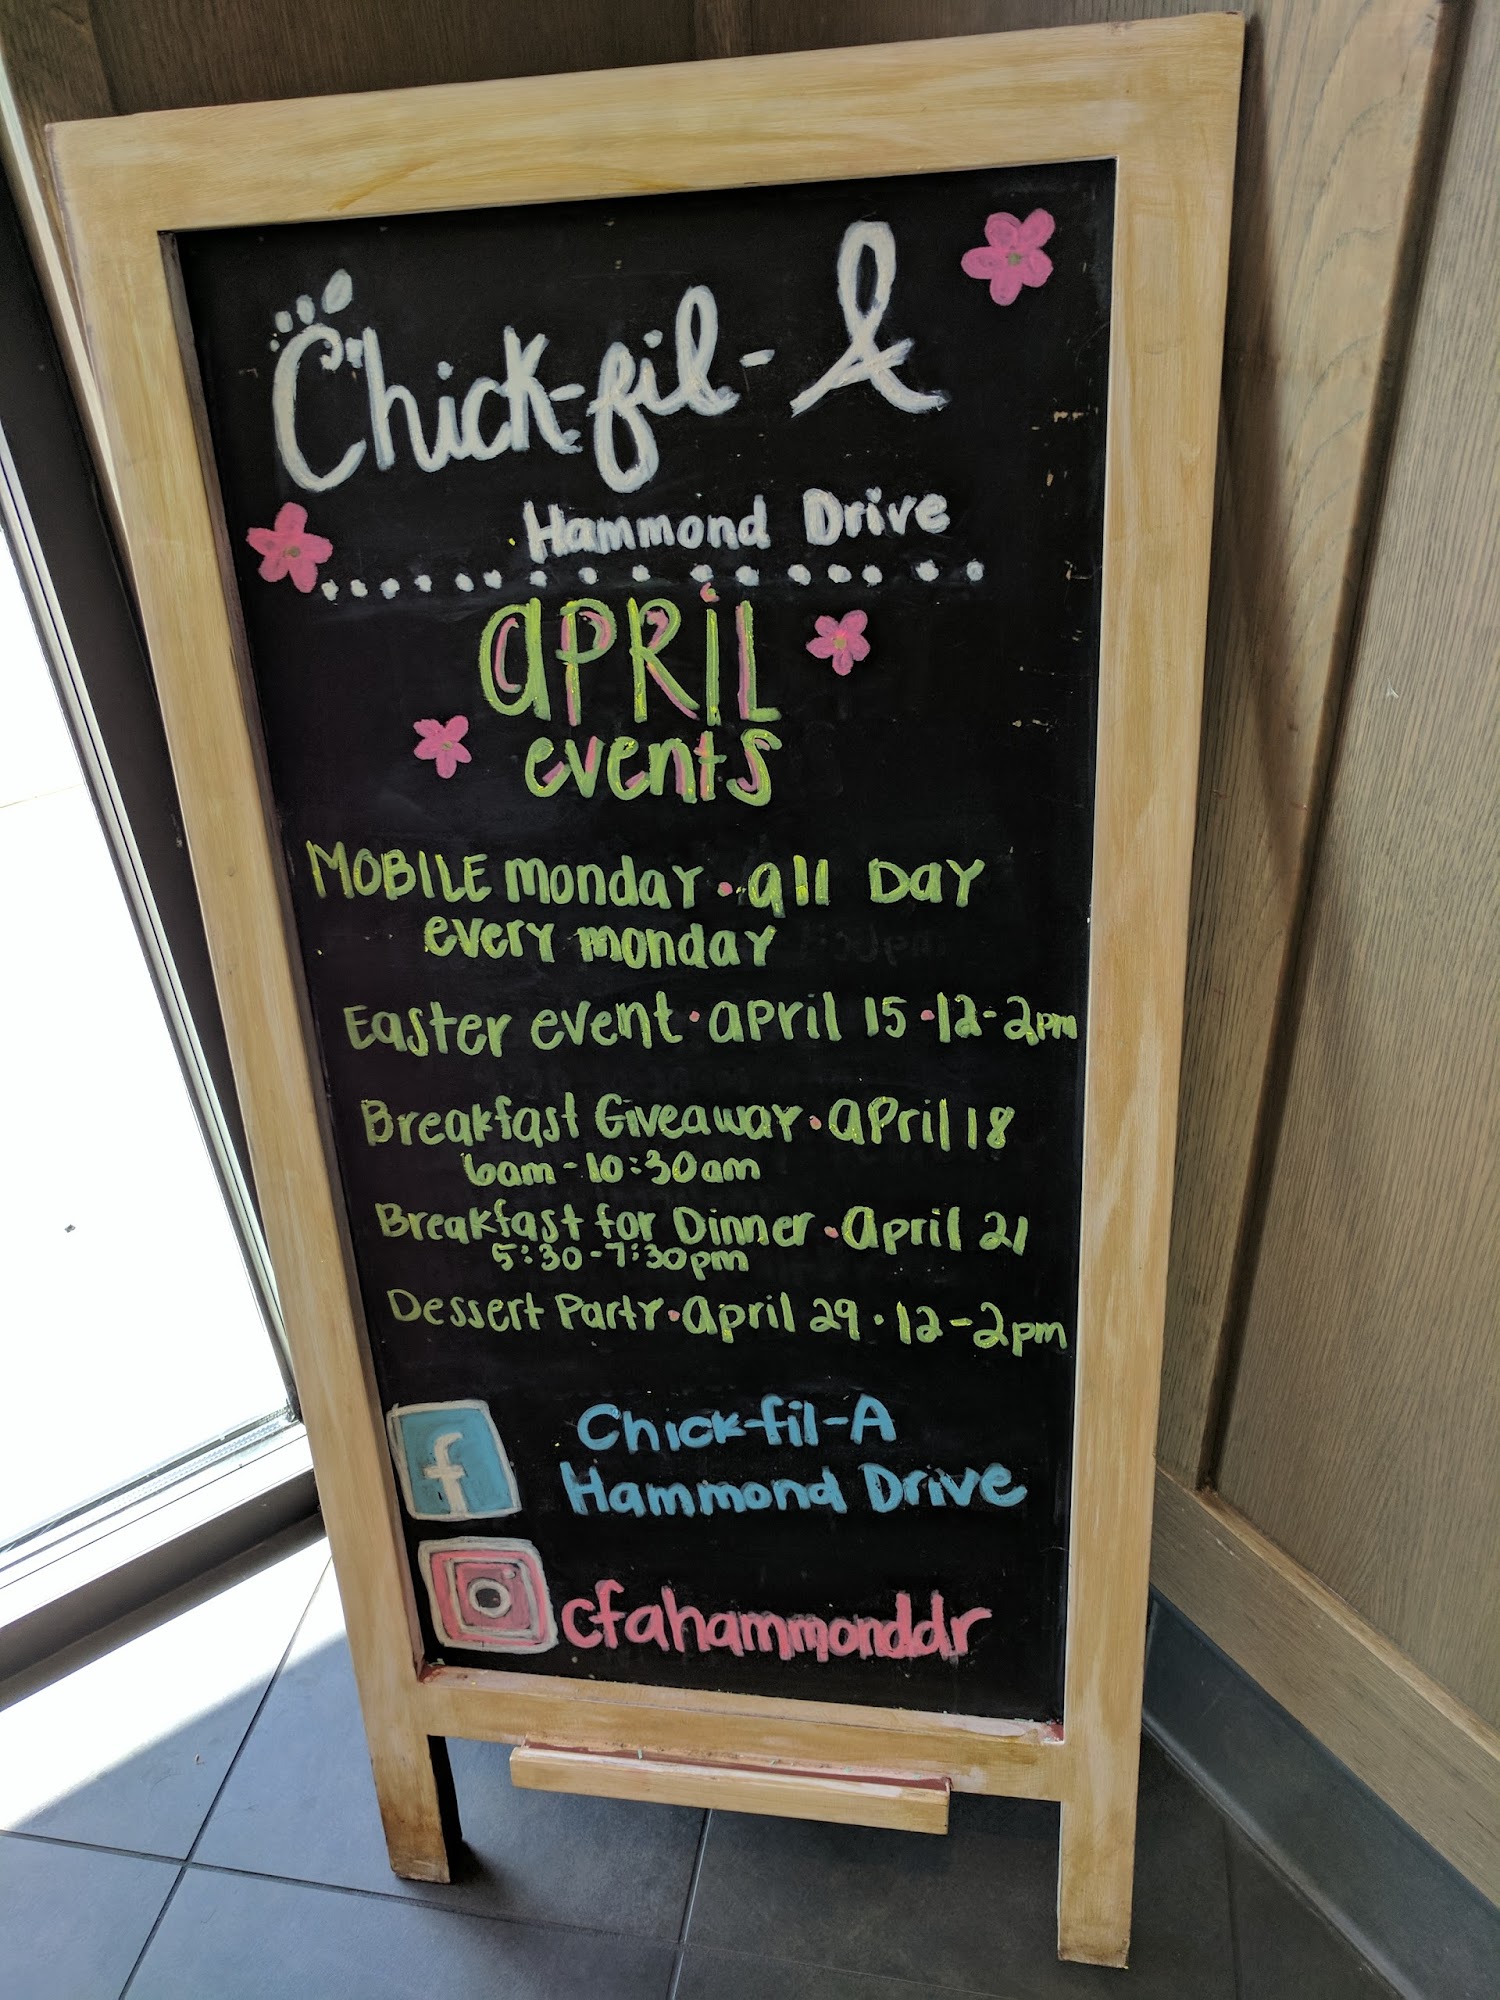 Chick-fil-A
Hammond Drive
aPRiL
events
MOBILE monday • all Day
every monday
Easter event • april 15 • 12-2pm
Breakfast Giveaway • april 18
6am - 10:30am
Breakfast for Dinner • april 21
5:30-7:30pm
Dessert Party • april 29 • 12-2pm
f Chick-fil-A
Hammond Drive
cfahammonddr